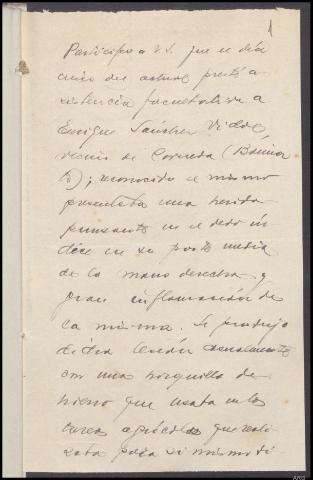 1
Participo a V.S. que el día
cinco del actual presté a-
sistencia facultativa a
Enrique Sánchez Vidal,
vecino de (Barrio
); reconocido el mismo
presentaba una herida
punzante en el dedo ín-
dice en su parte media
de la mano derecha y
gran inflamación de
la misma. Se produjo
dicha lesión casualmente
con una horquilla de
hierro que usaba en las
tareas agrícolas que reali-
zaba para si mismo di-